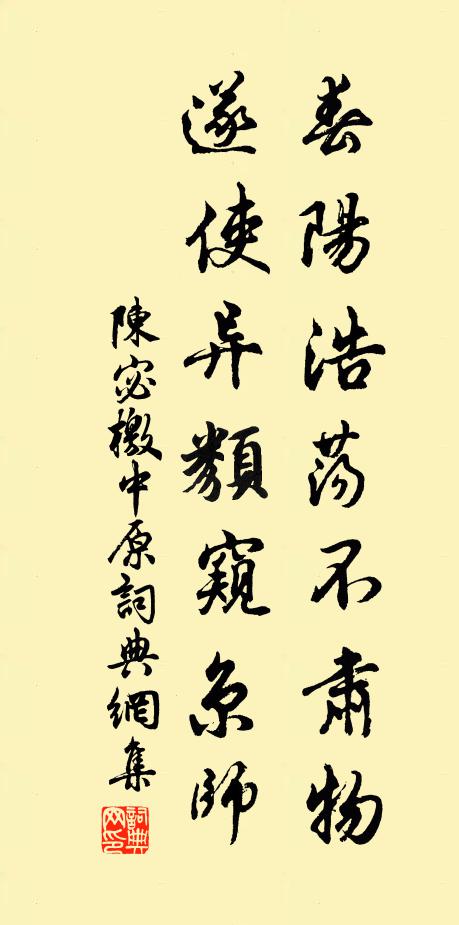 春陽浩蕩不肅物
遂使异類窺京師
陳宓檄中原詞典網集
詞典網印